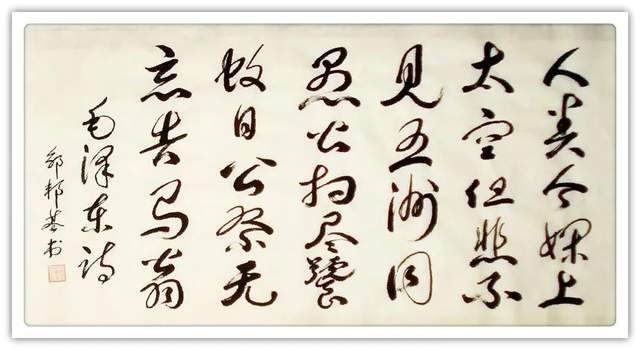 人类今娴上
太空但悲不
见五洲同
愚公扫尽饕
蚊日公祭无
忘告马翁
毛泽东诗
邦基书